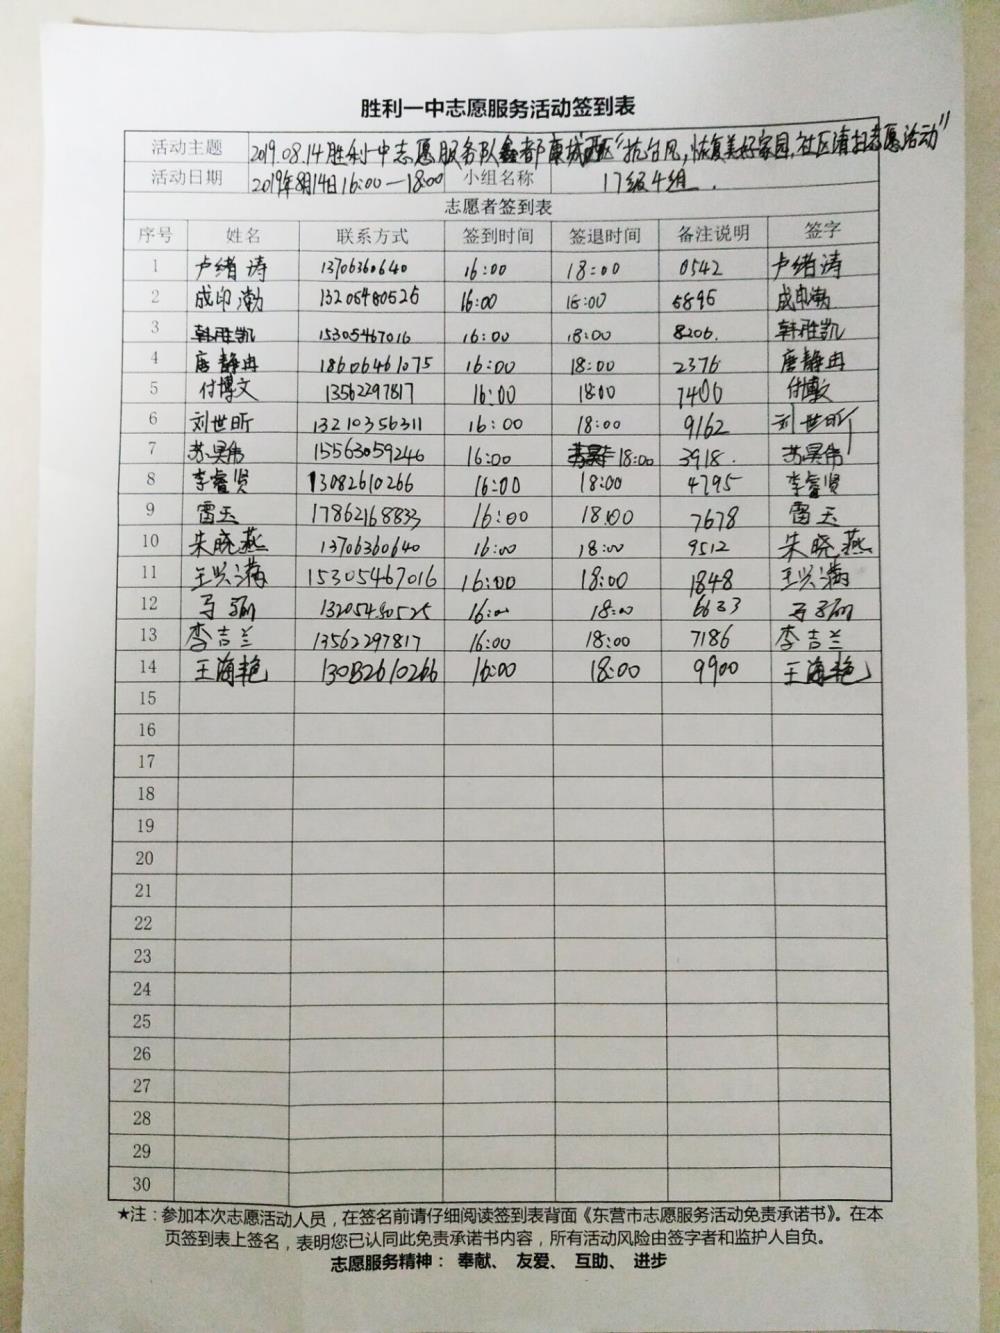 胜利一中志愿服务活动签到表
活动主题 2019.08.14胜利一中志愿服务队鑫都康城西区"抗台风,恢复美好家园,社区清扫志愿活动"
活动日期 2019年8月14日16:00—18:00 小组名称 17级4组.
志愿者签到表
序号 姓名 联系方式 签到时间 签退时间 备注说明 签字
1 卢绪涛 13706360640 16:00 18:00 0542 卢绪涛
2 成印渤 13205480525 16:00 18:00 5895 成印渤
3 韩胜凯 15305467016 16:00 18:00 8206. 韩胜凯
4 唐静冉 18606461075 16:00 18:00 2376 唐静冉
5 付博文 13562297817 16:00 18:00 7400 付博文
6 刘世昕 13210356311 16:00 18:00 9162 刘世昕
7 苏昊伟 15563059246 16:00 18:00 3918. 苏昊伟
8 李睿贤 13082610266 16:00 18:00 4795 李睿贤
9 雷玉 17862168833 16:00 18:00 7678 雷玉
10 朱晓燕 13706360640 16:00 18:00 9512 朱晓燕
11 王兴满 15305467016 16:00 18:00 1848 王兴满
12 马 13205480525 16:00 18:00 6633 马
13 李吉兰 13562297817 16:00 18:00 7186 李吉兰
14 王海艳 13082610266 16:00 18:00 9900 王海艳
15
16
17
18
19
20
21
22
23
24
25
26
27
28
29
30
★注：参加本次志愿活动人员，在签名前请仔细阅读签到表背面《东营市志愿服务活动免责承诺书》。在本
页签到表上签名，表明您已认同此免责承诺书内容，所有活动风险由签字者和监护人自负。
志愿服务精神： 奉献、 友爱、 互助、 进步